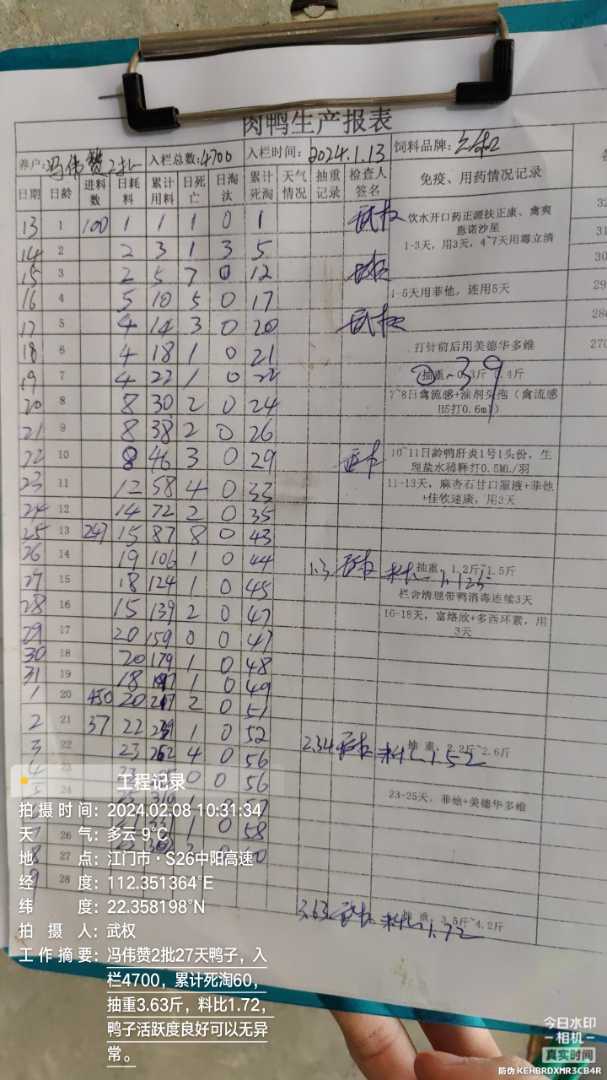 肉鸭生产报表
养户:冯伟赞2批 入栏总数:4700 入栏时间:2024.1.13 饲料品牌:
日期 日龄 进料数 日耗料 累计用料 日死亡 日淘汰 累计死淘 天气情况 抽重记录 检查人签名 免疫、用药情况记录
13 1 100 1 1 1 0 1 武权 饮水开口药正源扶正康、禽爽
恩诺沙星
14 2 2 3 1 3 5 1-3天，用3天，4~7天用霉立清
15 3 2 5 7 0 12 武权
16 4 5 10 5 0 17 1-5天用菲他，连用5天
17 5 4 14 3 0 20 武权
18 6 4 18 1 0 21 打针前后用美德华多维
19 7 4 22 1 0 22 抽重 0.39
20 8 8 30 2 0 24 7~8日禽流感+油剂头孢（禽流感
H5打0.6ml）
21 9 8 38 2 0 26
22 10 8 46 3 0 29 10~11日龄鸭肝炎1号1头份，生
理盐水稀释打0.5ML/羽
23 11 12 58 4 0 33 11-13天，麻杏石甘口服液+菲他
+佳牧速康，用3天
24 12 14 72 2 0 35
25 13 247 15 87 8 0 43
26 14 19 106 1 0 44 1.3 武权 料比1.125 抽重：1.2斤~1.5斤
27 15 18 124 1 0 45 栏舍清理带鸭消毒连续3天
28 16 15 139 2 0 47 16-18天，富络欣+多西环素，用
3天
29 17 20 159 0 0 47
30 18 20 179 1 0 48
31 19 18 197 1 0 49
1 20 450 20 217 2 0 51
2 21 37 22 239 1 0 52
3 22 23 262 4 0 56 2.34 武权 料比1.52 抽重：2.2斤~2.6斤
4 23 0 0 56
24 23-25天，菲他+美德华多维
7 26 1 0 58
8 27
9 28 3.63 武权 料比1.72 抽重：3.5斤~4.2斤
工程记录
拍摄时间：2024.02.08 10:31:34
天气：多云 9℃
地点：江门市·S26中阳高速
经度：112.351364°E
纬度：22.358198°N
拍摄人：武权
工作摘要：冯伟赞2批27天鸭子，入
栏4700，累计死淘60，
抽重3.63斤，料比1.72，
鸭子活跃度良好可以无异
常。
今日水印
相机
真实时间
防伪 KEHBRDXMR3CB4R